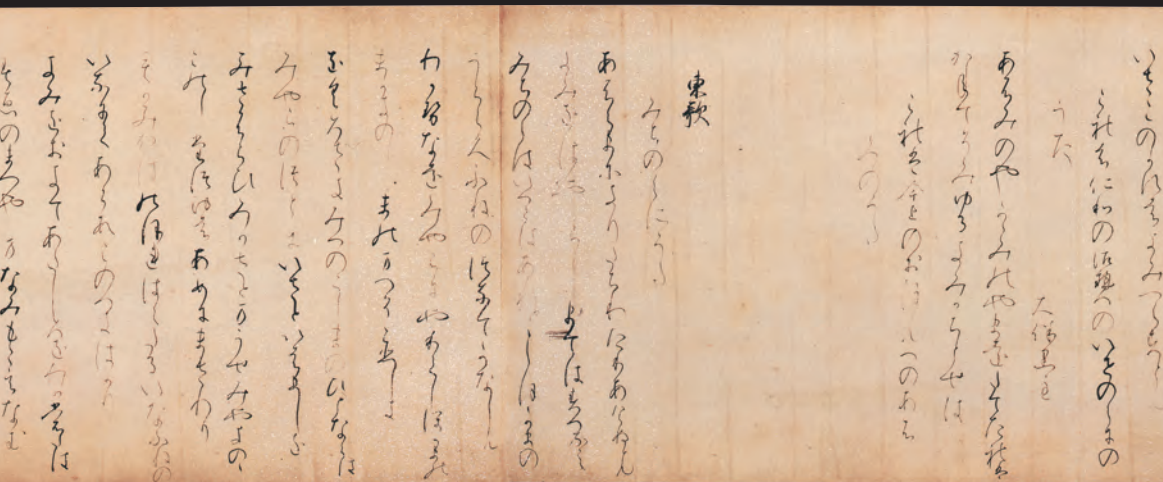 いさこのかすはよみつくすとも
これは仁和の御へのいせのくにの
うた
大伴黒主
あふみのやかゝみのやまをたてたれは
かねてそみゆるきみかちとせは
これは今上のおほむへのあふみ
のうた
東歌
みちのくにうた
あふくまにきりたちわたりあけぬとも
きみをはやらしまてはすへなし
みちのくはいつくはあれとしほかまの
うらこくふねのつなてかなしも
わかせなをみやこにやりてしほかまの
まかきのしまのまつそこひしき
をくろさきみつのこしまのひとならは
みやこのつとにいさといはましを
みさふらひみかさとまうせみやきのゝ
このしたつゆはあめにまされり
もかみかはのほれはくたるいなふねの
いなにはあらすこのつきはかり
きみをおきてあたしこゝろをわかもたは
すゑのまつやまなみもこえなむ